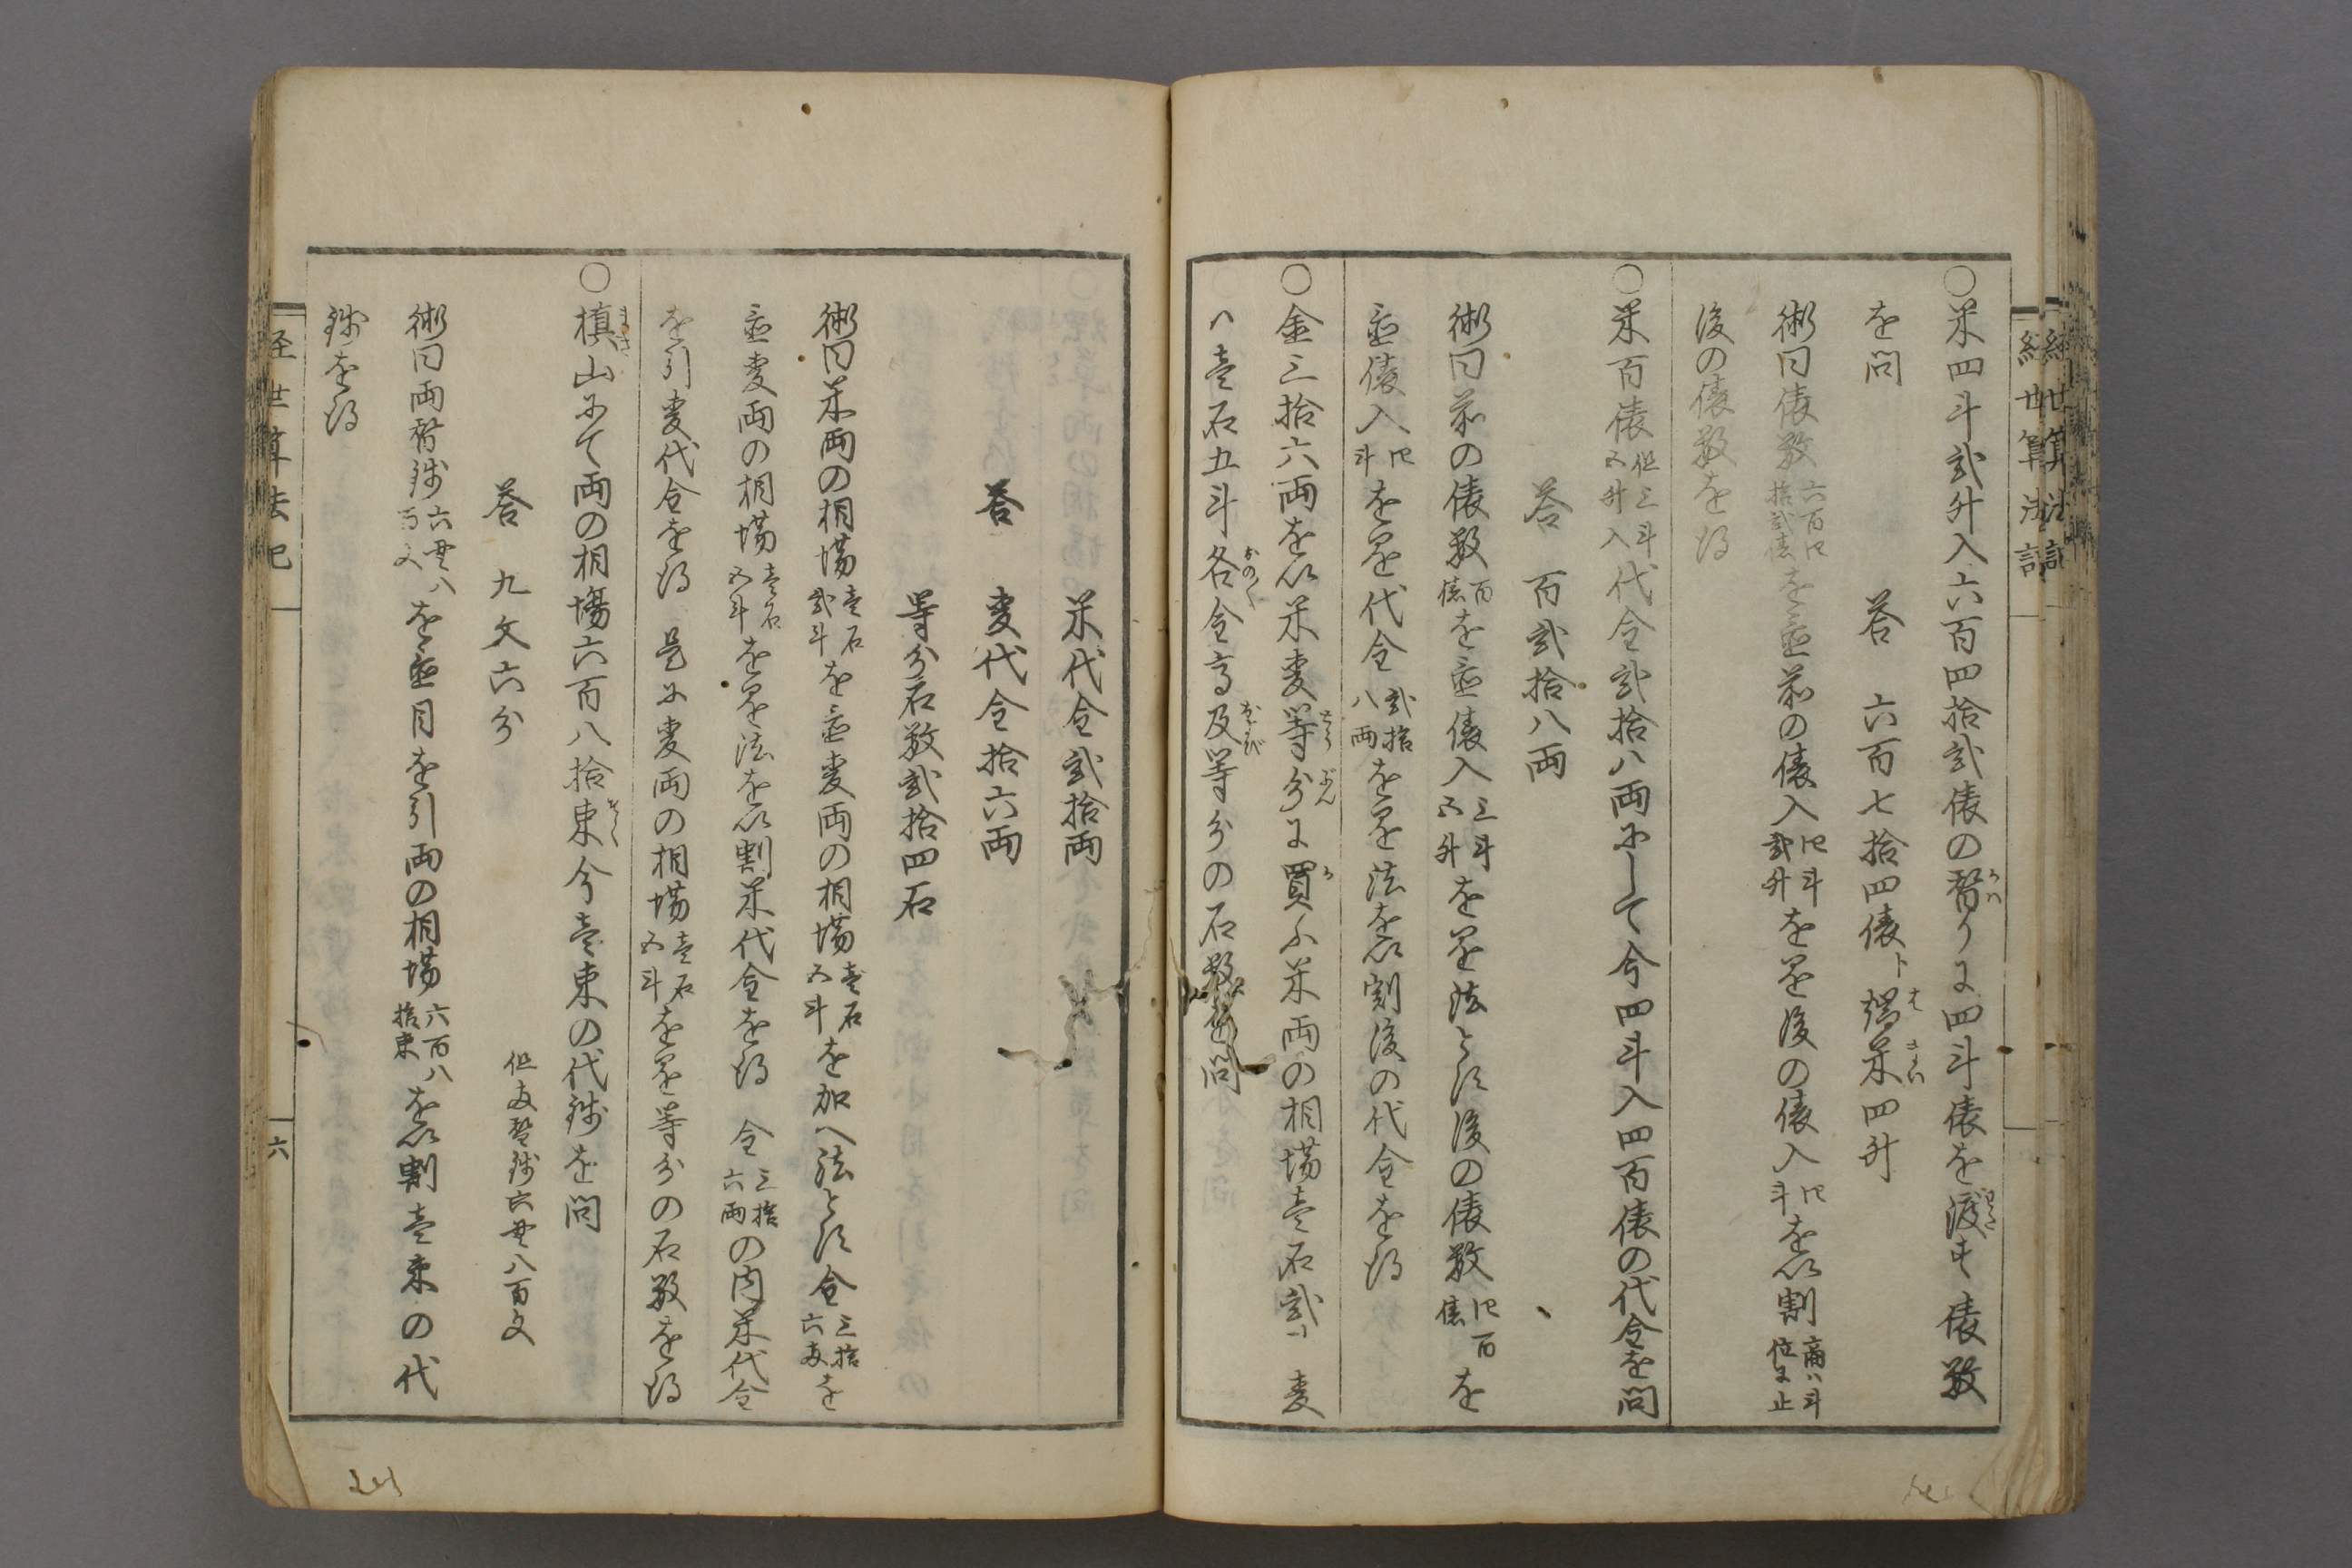 経世算法記
○米四斗弐升入六百四拾弐俵の替りに四斗俵を渡す俵数
を問
答 六百七拾四俵ト端米四升
術曰俵数六百四拾弐俵を置前の俵入四斗弐升を掛後の俵入四斗を以割商ハ斗位に止
後の俵数を得
○米百俵但三斗五升入代金弐拾八両にして今四斗入四百俵の代金を問
答 百弐拾八両
術曰前の俵数百俵を置俵入三斗五升を掛法とす後の俵数四百俵を
置俵入四斗を掛代金弐拾八両を掛法を以割後の代金を得
○金三拾六両を以米麦等分に買ふ米両の相場壱石弐斗麦
ハ壱石五斗各金高及等分の石数を問
米代金弐拾両
答 麦代金拾六両
等分石数弐拾四石
術曰米両の相場壱石弐斗を置麦両の相場壱石五斗を加へ法とす金三拾六両を
置麦両の相場壱石五斗を掛法を以割米代金を得 金三拾六両の内米代金
を引麦代金を得 是に麦両の相場壱石五斗を掛等分の石数を得
○槙山にて両の相場六百八拾束今壱束の代銭を問
答 九文六分 但両替銭六貫八百文
術曰両替銭六貫八百文を置目を引両の相場六百八拾束を以割壱束の代
銭を得
経世算法記 六